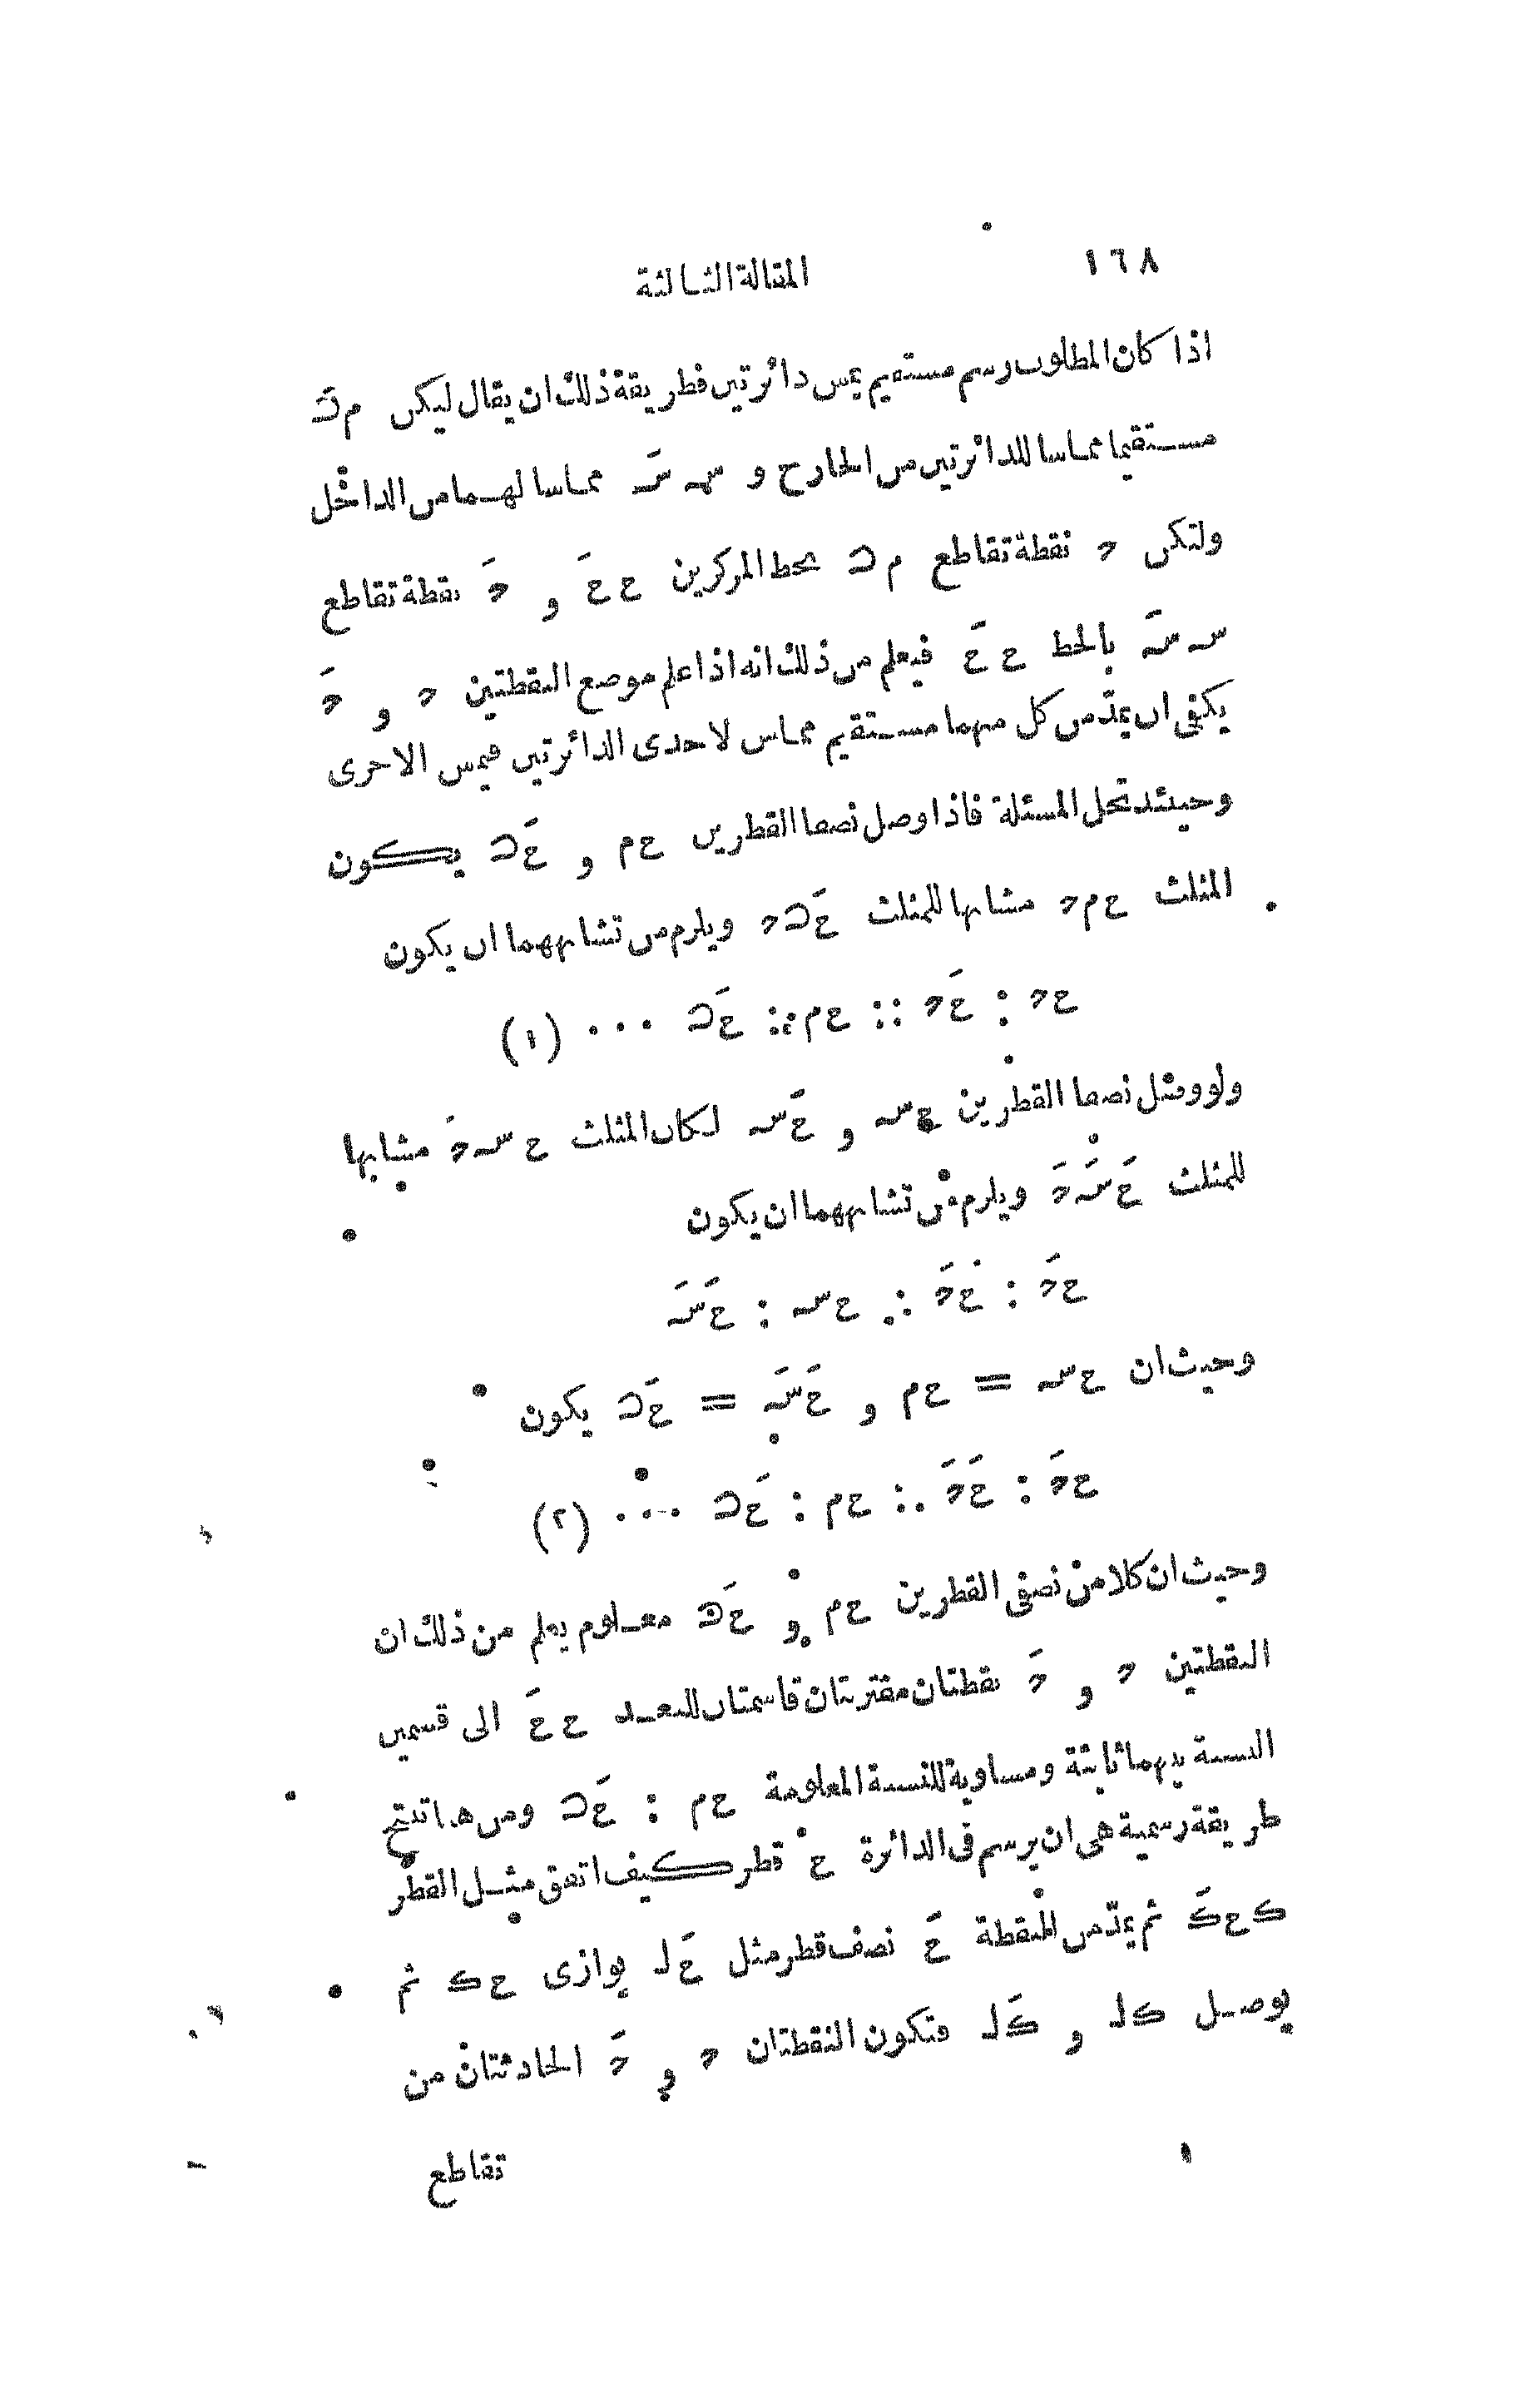 ١٦٨ المقالة الثالثة
اذا كان المطلوب رسم مستقيم يمس دائرتين فطريقة ذلك ان يقال ليكن م ﮐ
مستقيما مماسا للدائرتين من الخارج و سہ سَہ مماسا لهما من الداخل
ولتكن ء نقطة تقاطع م ﮐ بخط المركزين ح حَ و ءَ نقطة تقاطع
سہ سَہ بالخط ح حَ فيعلم من ذلك انه اذا علم موضع النقطتين ء و ءَ
يكفى ان يمدّ من كل منهما مستقيم مماس لاحدى الدائرتين فيمس الاخرى
وحينئذ تحل المسئلة فاذا وصل نصفا القطرين ح م و حَ ﮐ يكون
المثلث ح م ء مشابها للمثلث حَ ﮐ ء ويلزم من تشابههما ان يكون
ح ء : حَ ء :: ح م : حَ ﮐ ... (١)
ولو وصل نصفا القطرين ح سہ و حَ سَہ لكان المثلث ح سہ ءَ مشابها
للمثلث حَ سَہ ءَ ويلزم من تشابههما ان يكون
ح ءَ : حَ ءَ :: ح سہ : حَ سَہ
وحيث ان ح سہ = ح م و حَ سَہ = حَ ﮐ يكون
ح ءَ : حَ ءَ :: ح م : حَ ﮐ ... (٢)
وحيث ان كلا من نصفى القطرين ح م و حَ ﮐ معلوم يعلم من ذلك ان
النقطتين ء و ءَ نقطتان مقترنتان قاسمتان للبعد ح حَ الى قسمين
النسبة بينهما ثابتة ومساوية للنسبة المعلومة ح م : حَ ﮐ ومن هذا تنتج
طريقة رسمية هى ان يرسم فى الدائرة ح قطر كيف اتفق مثل القطر
ك ح كَ ثم يمدّ من النقطة حَ نصف قطر مثل حَ ل يوازى ح ك ثم
يوصل ك ل و كَ ل فتكون النقطتان ء و ءَ الحادثتان من
تقاطع